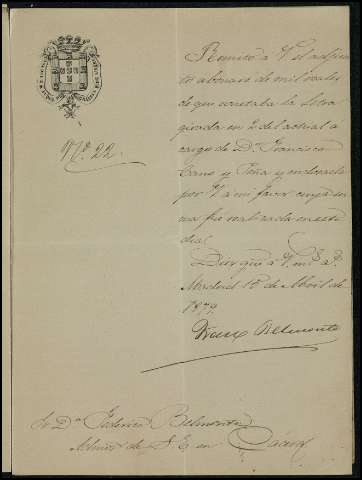 Nº 22.
Remito a V. el adjun
to abonaré de mil reales
de que constaba la letra
girada en 2 del actual á
cargo de Dn. Francisco
Cano y Peña y endosada
por V. á mi favor cuya su
ma fué realizada en este
dia.
Dios gue. á V. ms. as.
Madrid 10 de Abril de
1879,
Belmonte
Sr. Dn. Federico Belmonte
de S. E. en Cáceres